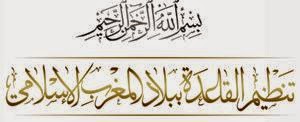 بسم الله الرحمن الرحيم
تنظيم القاعدة ببلاد المغرب الإسلامي